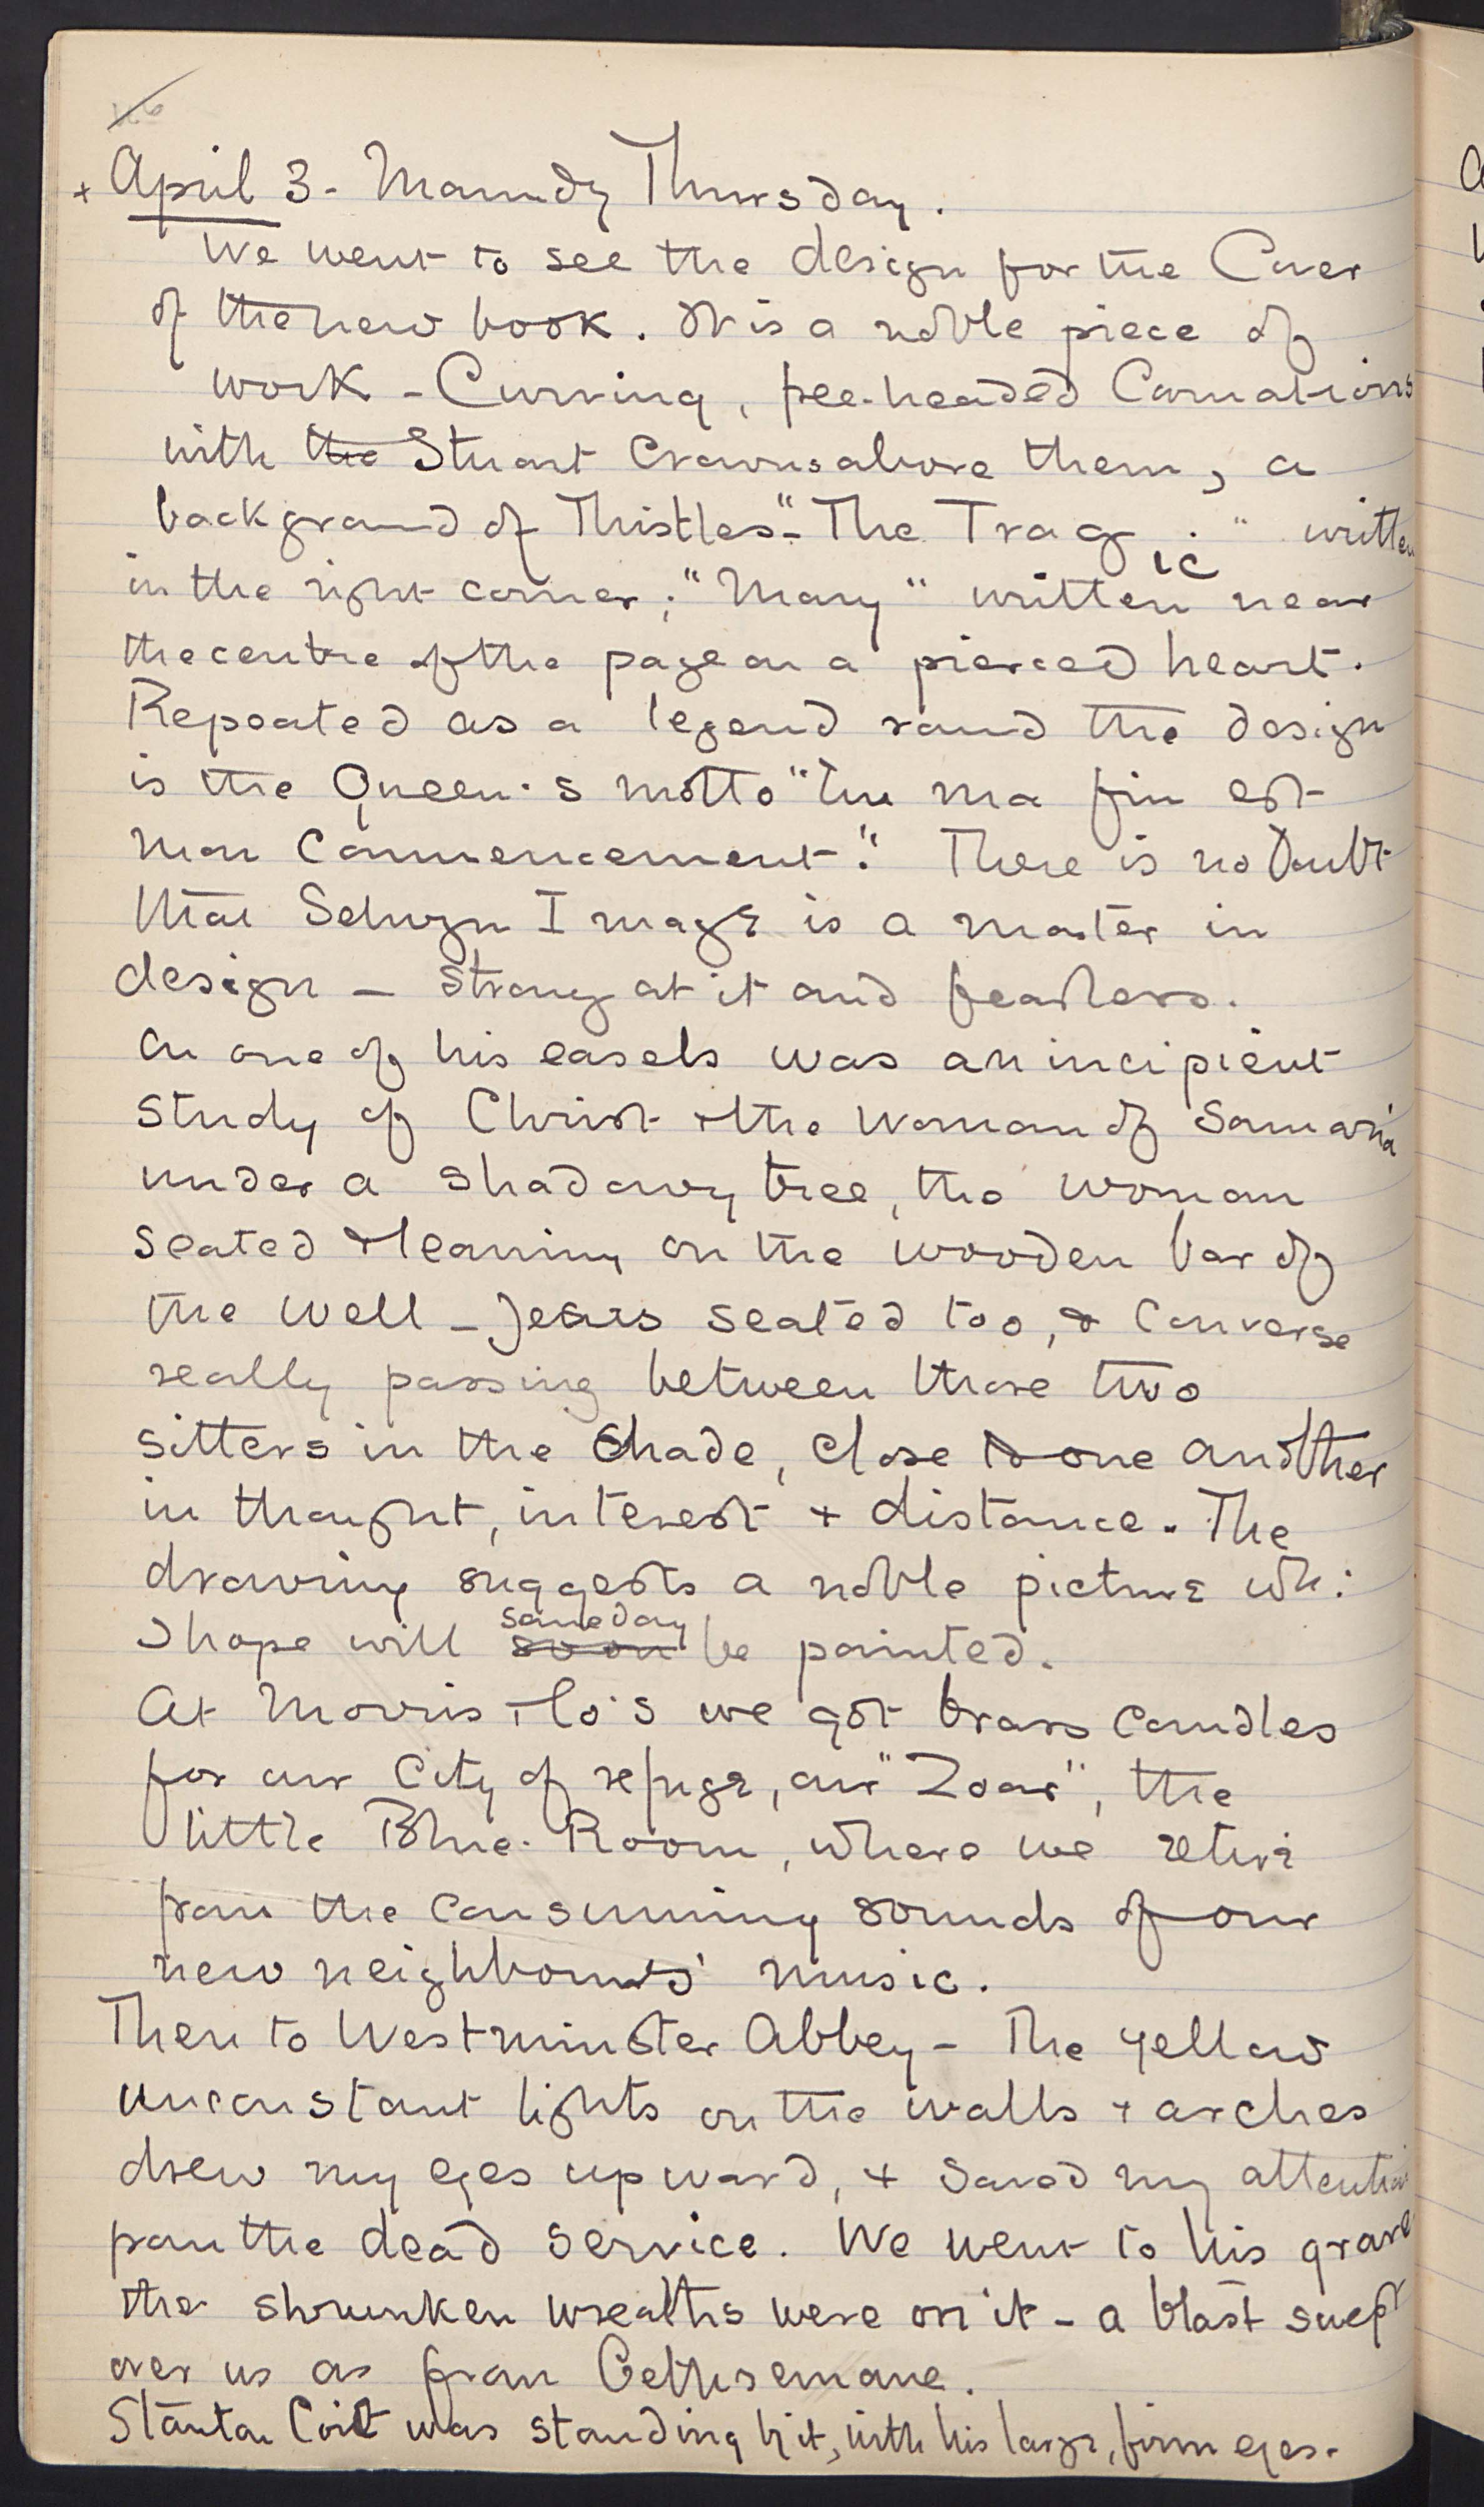 + April 3 - Maundy Thursday.
We went to see the design for the Cover
of the new book. It is a noble piece of
work - Curving, free-headed Carnations
with the Stuart Crowns above them, a
background of Thistles - "The Tragic" written
in the right corner; "Mary" written near
the centre of the page on a pierced heart.
Repeated as a legend round the design
is the Queen's motto "En ma fin est
mon Commencement." There is no doubt
that Selwyn Image is a master in
design - strong at it and fearless.
On one of his easels was an incipient
study of Christ & the Woman of Samaria
under a shadowy tree, the woman
seated & leaning on the wooden bar of
the well - Jesus seated too, & Converse
really passing between those two
sitters in the shade, close to one another
in thought, interest & distance. The
drawing suggests a noble picture wh:
I hope will soon some day be painted.
At Morris & Co's we got brass Candles
for our City of refuge, our "Zoar", the
little Blue Room, where we retire
from the consuming sounds of our
new neighbours' music.
Then to Westminster Abbey - The yellow
unconstant lights on the walls & arches
drew my eyes upward, & saved my attention
from the dead service. We went to his grave
the shrunken wreaths were on it - a blast swept
over us as from Gethsemane.
Stanton Coit was standing by it, with his large, firm eyes.